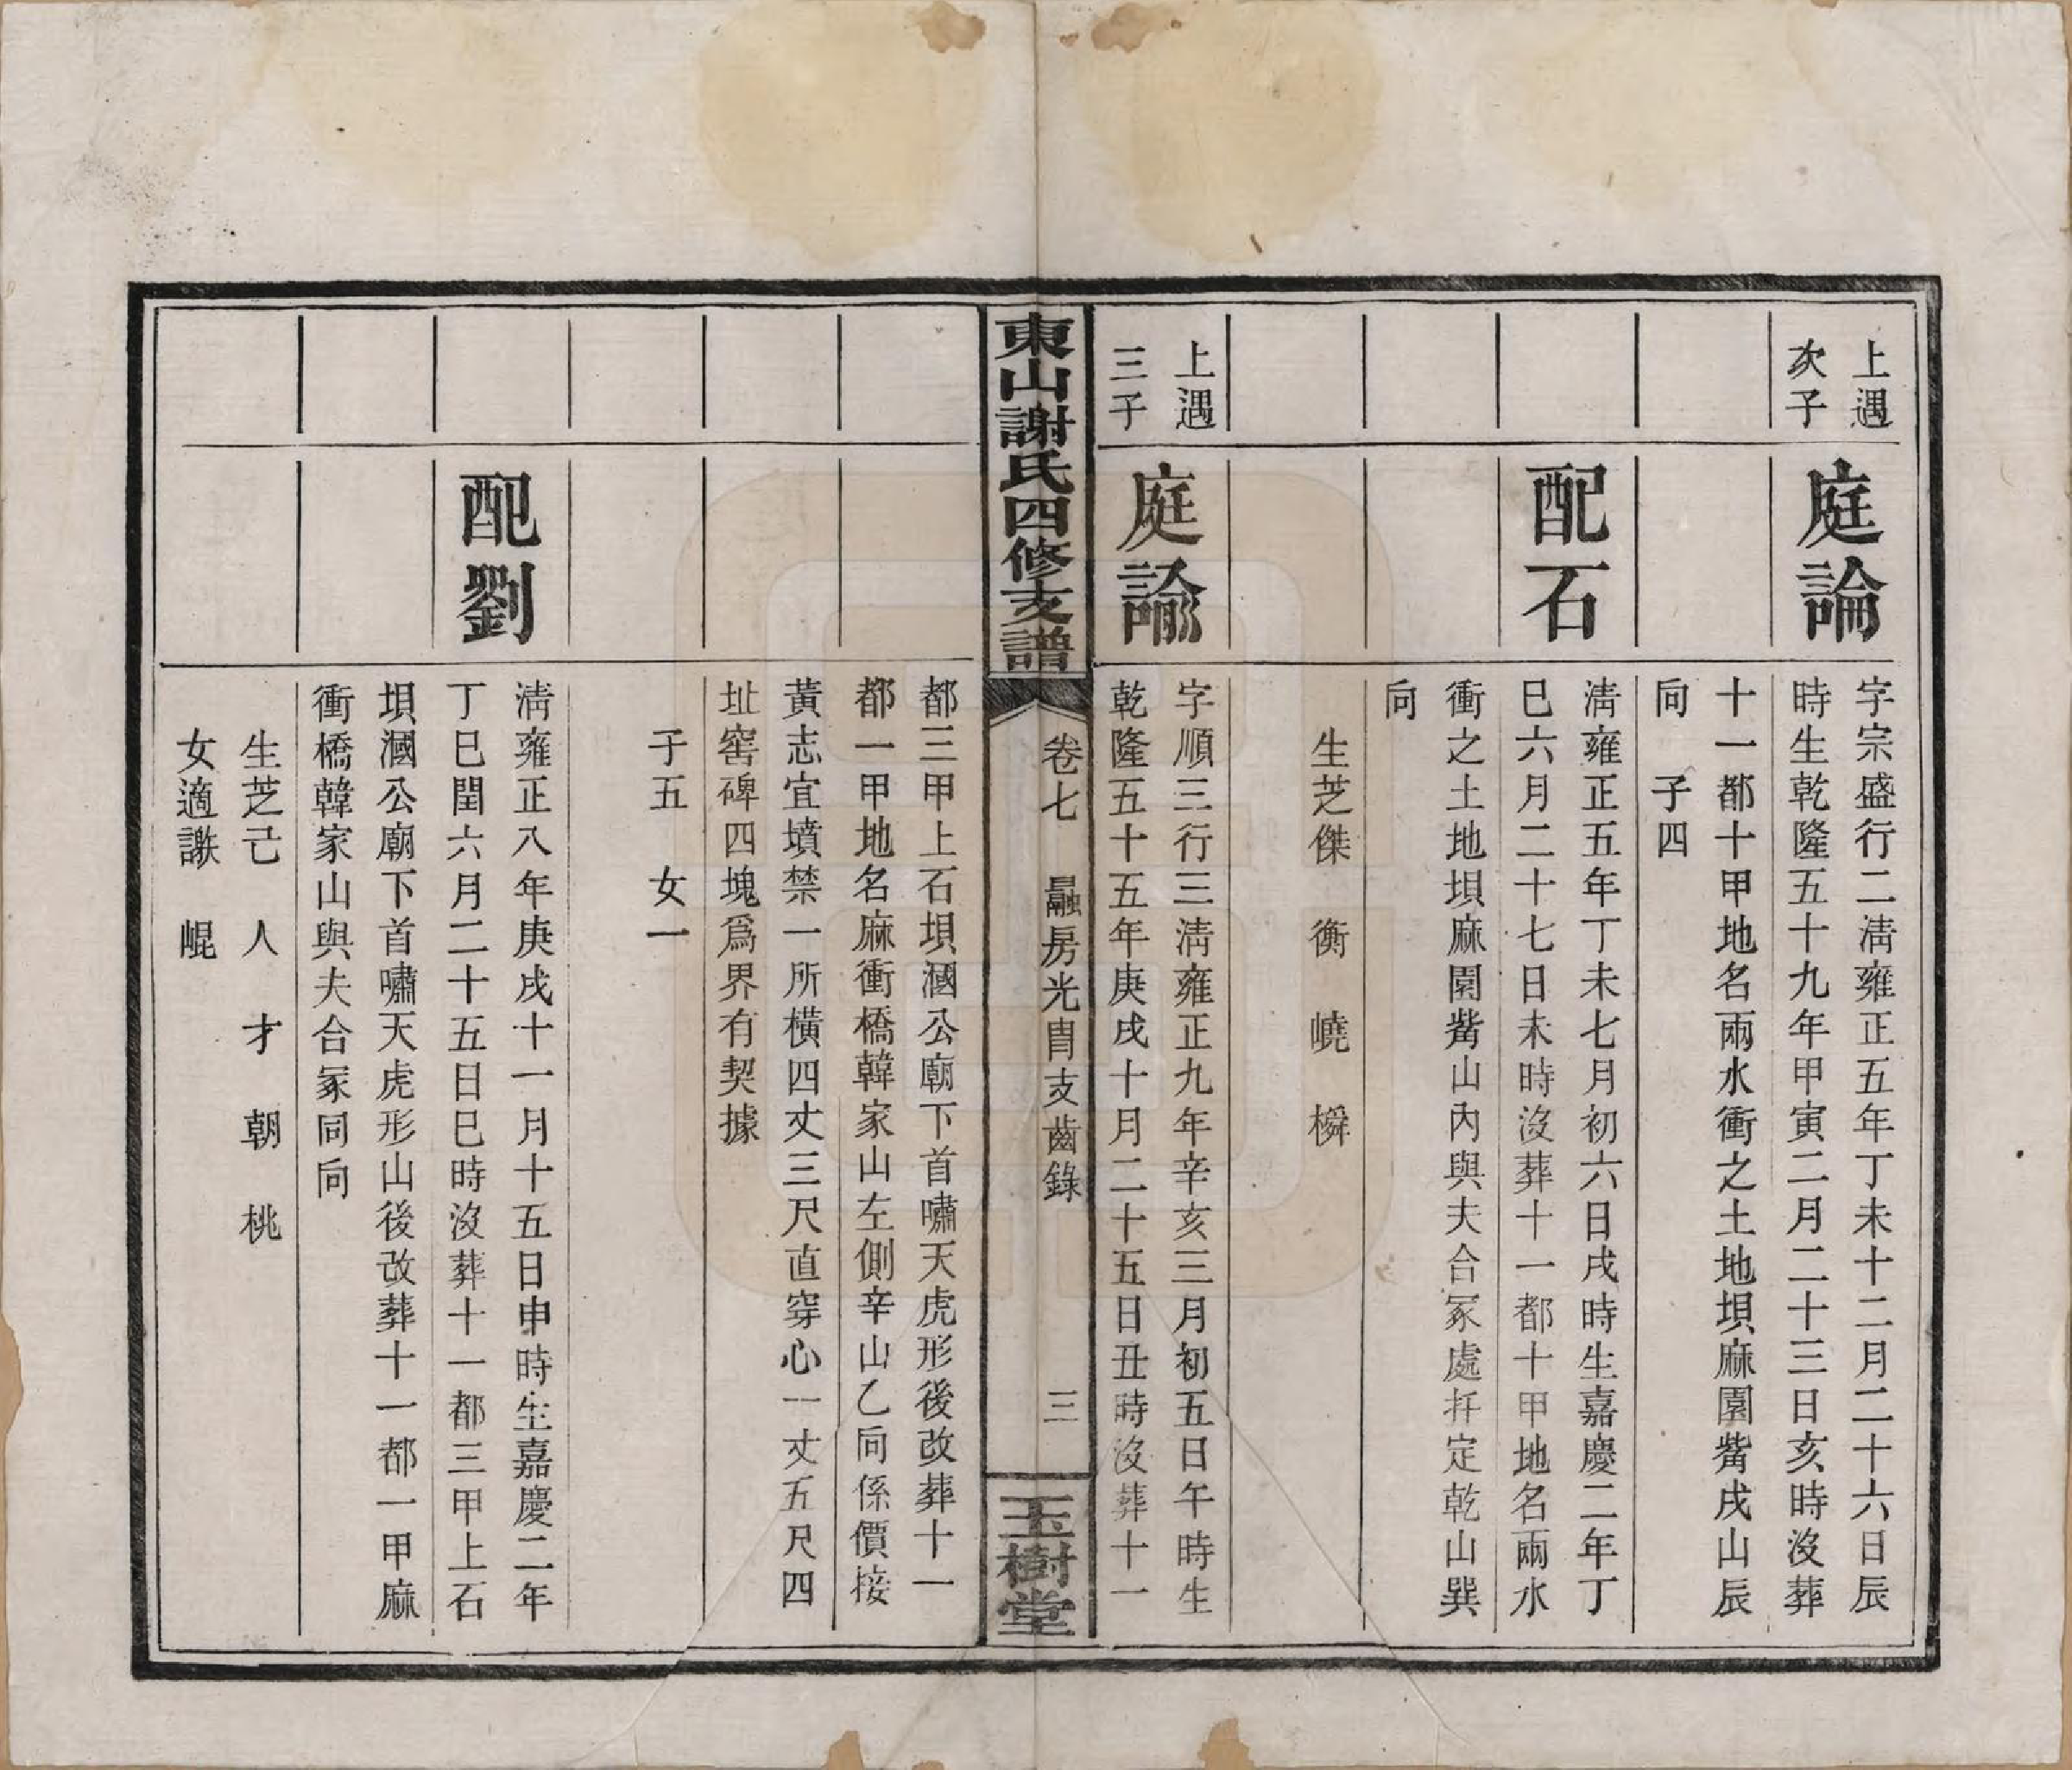 上遇
次子
庭論
字宗盛行二淸雍正五年丁未十二月二十六日辰
時生乾隆五十九年甲寅二月二十三日亥時沒葬
十一都十甲地名兩水衝之土地垻麻園觜戌山辰
向　子四
配石
淸雍正五年丁未七月初六日戌時生嘉慶二年丁
巳六月二十七日未時沒葬十一都十甲地名兩水
衝之土地垻麻園觜山內與夫合冢處扦定乾山巽
向
生芝傑　衡　嶢　橓
上遇
三子
庭諭
字順三行三淸雍正九年辛亥三月初五日午時生
乾隆五十五年庚戌十月二十五日丑時沒葬十一
東山謝氏四修支譜
卷七　融房光胄支齒錄
三
玉樹堂
都三甲上石垻漍公廟下首嘯天虎形後改葬十一
都一甲地名麻衝橋韓家山左側辛山乙向係價接
黃志宜墳禁一所橫四丈三尺直穿心一丈五尺四
址窖碑四塊爲界有契據
子五　女一
配劉
淸雍正八年庚戌十一月十五日申時生嘉慶二年
丁巳閏六月二十五日巳時沒葬十一都三甲上石
垻漍公廟下首嘯天虎形山後改葬十一都一甲麻
衝橋韓家山與夫合冢同向
生芝己　人　才　朝　桃
女適譤　崐